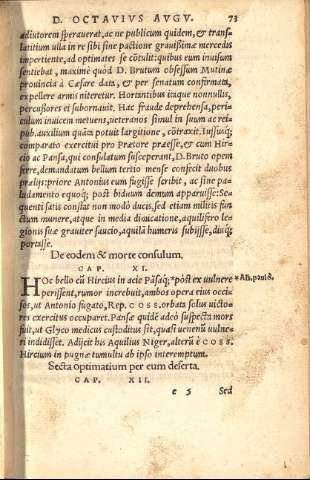 D. OCTAVIVS AVGV. 73
adiutorem sperauerat, ac ne publicum quidem, & trans
latitium ulla in re sibi sine pactione grauissimæ mercedis
impertiente, ad optimates se cõtulit: quibus eum inuisum
sentiebat, maximè quòd D. Brutum obsessum Mutinæ
prouincia à Cæsare data, & per senatum confirmata,
expellere armis niteretur. Hortantibus itaque nonnullis,
percussores ei subornauit. Hac fraude deprehensa, peri=
culum inuicem metuens, ueteranos simul in suum ac rei=
pub. auxilium quãta potuit largitione, cõtraxit. Iussusq;
comparato exercitui pro Prætore præesse, & cum Hir=
cio ac Pansa, qui consulatum susceperant, D. Bruto opem
ferre, demandatum bellum tertio mense confecit duobus
prælijs: priore Antonius eum fugisse scribit, ac sine pa=
ludamento equoq; post biduum demum apparuisse: Se=
quenti satis constat non modò ducis, sed etiam militis fun
ctum munere, atque in media dimicatione, aquilifero le=
gionis suæ grauiter saucio, aquilã humeris subijsse, diuq;
portasse.
De eodem & morte consulum.
CAP. XI.
HOc bello cũ Hircius in acie Pãsaq; *pòst ex uulnere *Als. paulò.
perissent, rumor increbuit, ambos opera eius occi=
sos, ut Antonio fugato, Rep. COSS. orbata solus uicto=
res exercitus occuparet. Pansæ quidẽ adeò suspecta mors
fuit, ut Glyco medicus custoditus sit, quasi uenenũ uulne=
ri indidisset. Adijcit his Aquilius Niger, alterũ è COSS.
Hircium in pugnæ tumultu ab ipso interemptum.
Secta optimatium per eum deserta.
CAP. XII.
e 5 Sed